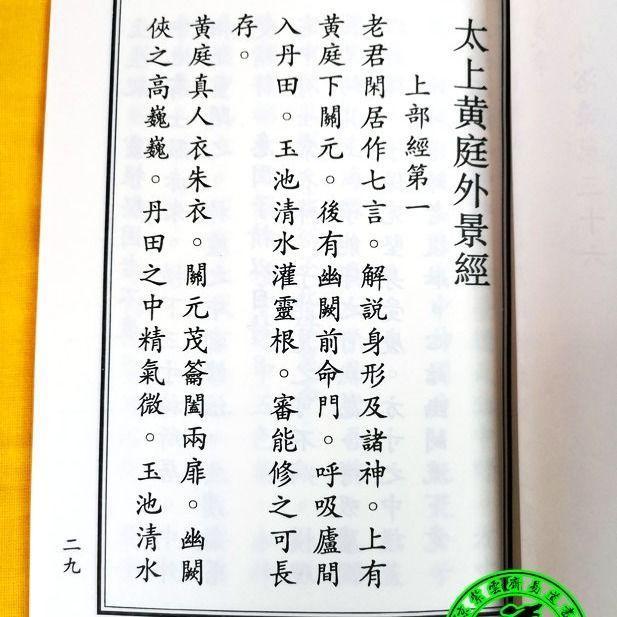 太上黄庭外景經
上部經第一
老君閑居作七言。解說身形及諸神。上有
黄庭下關元。後有幽闕前命門。呼吸廬間
入丹田。玉池清水灌靈根。審能修之可長
存。
黄庭真人衣朱衣。關元茂籥闔兩扉。幽闕
俠之高巍巍。丹田之中精氣微。玉池清水
二九
京紫雲齋易道書